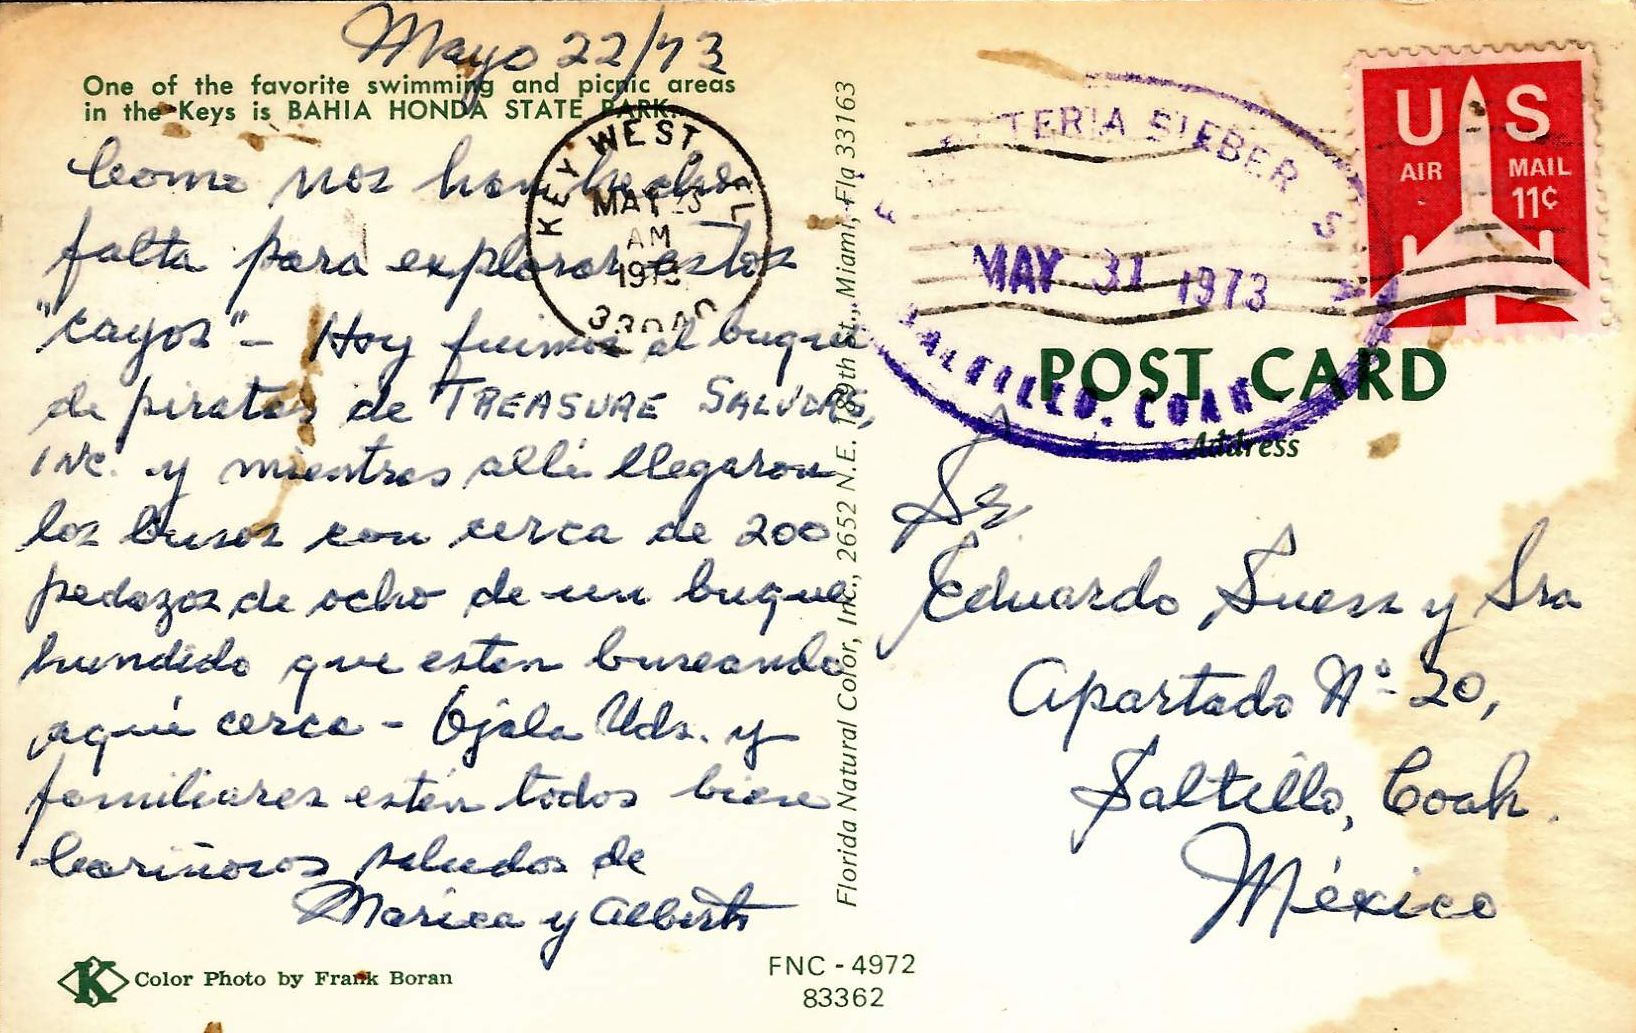 Mayo 22/73
One of the favorite swimming and picnic areas
in the Keys is BAHIA HONDA STATE PARK.
Como nos han hecho
falta para explorar estos
"cayos" - Hoy fuimos al buque
de piratas de TREASURE SALVORS,
INC. y mientras allí llegaron
los busos con cerca de 200
pedazos de ocho de un buque
hundido que estan buscando
aquí cerca - Ojala Uds. y
familiares estén todos bien
Cariñosos saludos de
y Alberto
K Color Photo by Frank Boran
FNC - 4972
83362
Florida Natural Color, Inc., 2652 N.E. 189th St., Miami, Fla 33163
KEY WEST FL
MAY 23
AM
1973
SIEBER
MAY 31 1973
SALTILLO, COAH.
US
AIR MAIL
11¢
POST CARD
Address
Sr.
Eduardo Suess y Sra
Apartado Nº 20,
Saltillo, Coah.
México